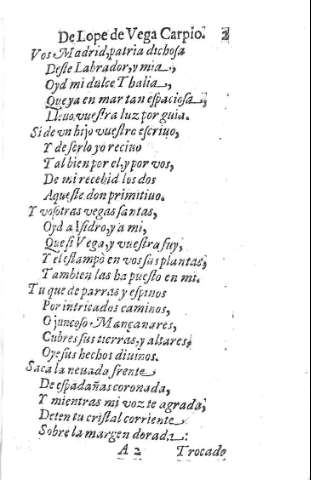 De Lope de Vega Carpio. 2
Vos Madrid, patria dichosa
Deste Labrador, y mia,
Oyd mi dulce Thalia,
Que ya en mar tan espaciosa,
Lleuo vuestra luz por guia.
Si de vn hijo vuestro escriuo,
Y de serlo yo reciuo
Tal bien por el, y por vos,
De mi recebid los dos
Aqueste don primitiuo.
Y vosotras vegas santas,
Oyd a Isidro, y a mi,
Que si Vega, y vuestra fuy,
Y el estampò en vos sus plantas,
Tambien las ha puesto en mi.
Tu que de parras y espinos
Por intricados caminos,
O juncoso Mançanares,
Cubres sus tierras, y altares,
Oye sus hechos diuinos.
Saca la neuada frente
De espadañas coronada,
Y mientras mi voz te agrada,
Deten tu cristal corriente
Sobre la margen dorada.
A 2 Trocado